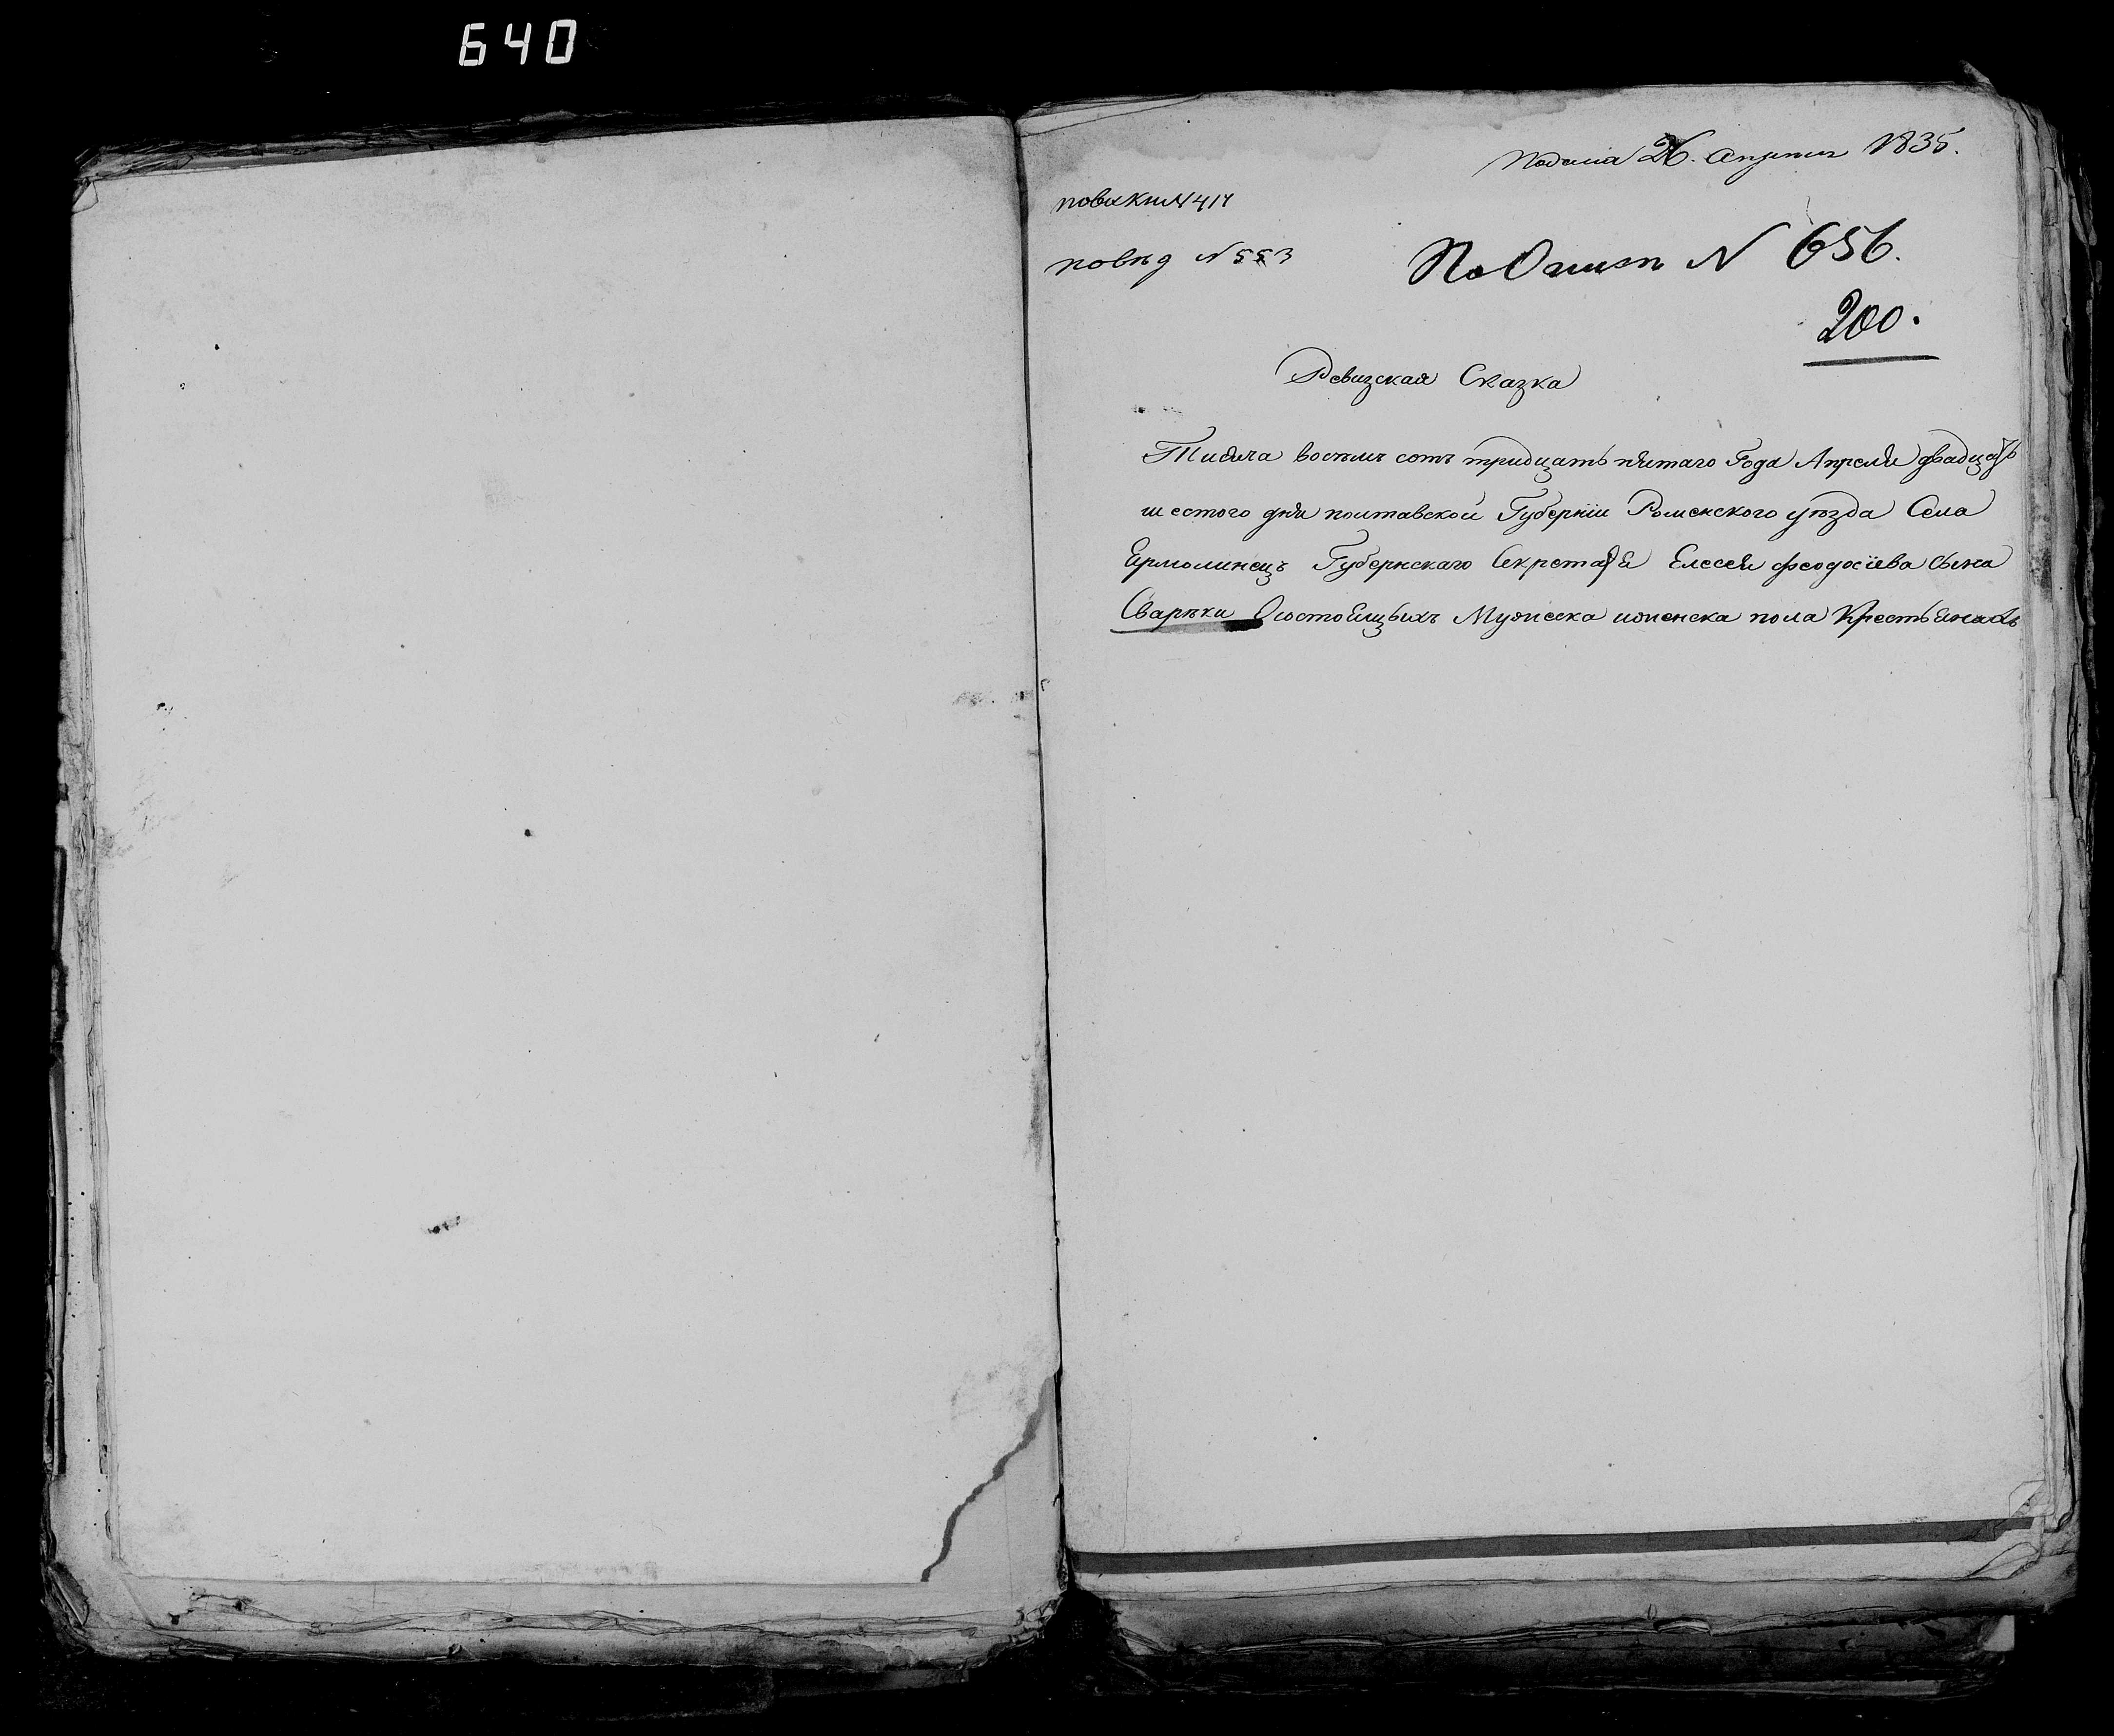 640
Подана 26. Апреля 1835.
по вх книг N 414
по вѣд N 553
По Описи N 656.
200.
Ревизская Сказка
Тисяча восѣмъ сотъ тридцать пятаго Года Апреля двадцать
шестого дня полтавской Губерніи Роменского уѣзда Села
Ермолинецъ Губернскаго Секретаря Елесея феодосіева Сына
Сварѣки Осостоящыхъ Мужеска иженска пола Крестьянахъ